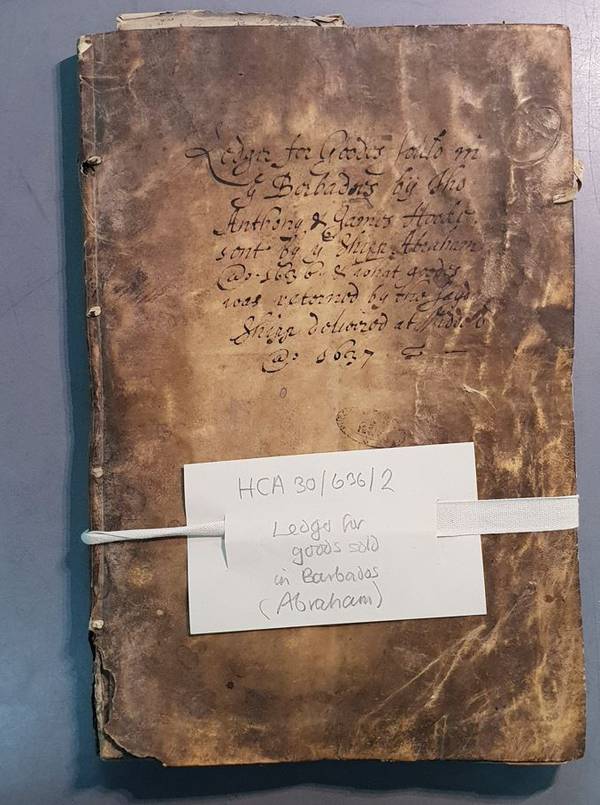 Ledger for Goodes sould in
ye Berbadoes by Tho
Anthony & James Hoocke
sent by ye Shipp Abraham
Ao. 1636 & what goodes
was retorned by the sayd
Shipp delivered at Middelb
Ao. 1637
HCA 30/636/2
Ledger for
goods sold
in Barbados
(Abraham)